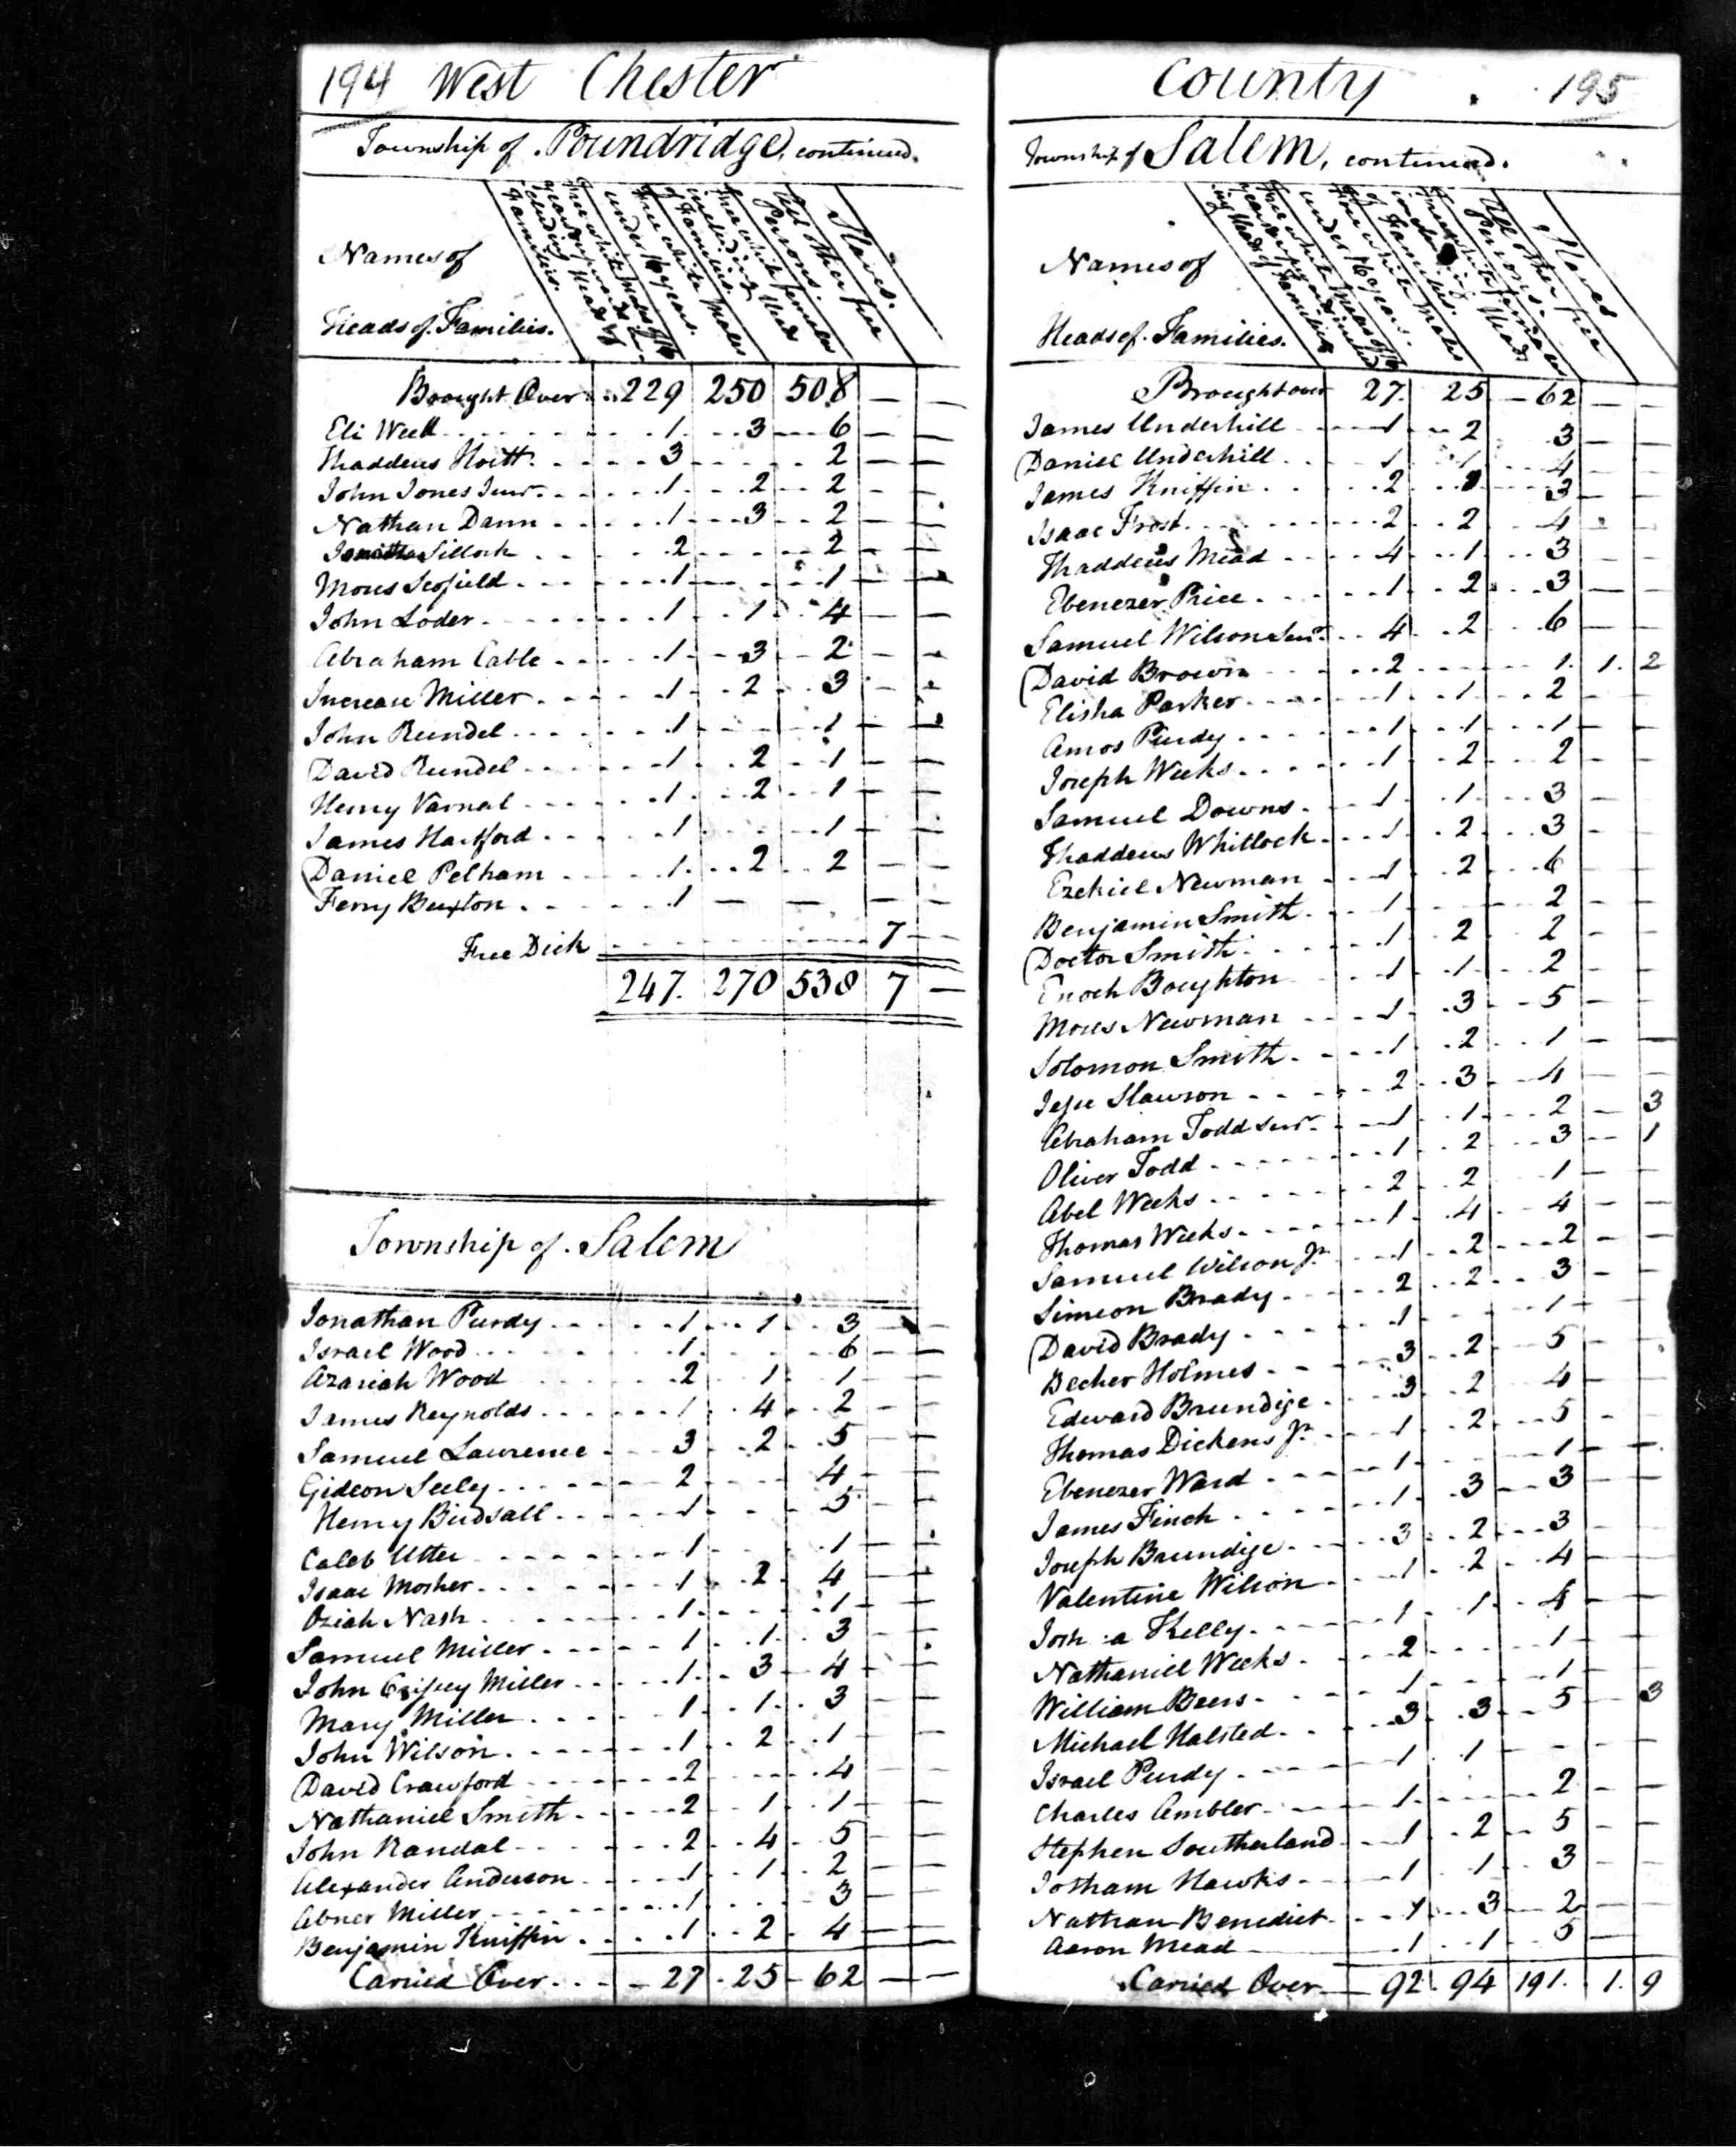 194 West Chester
Township of Poundridge, continued.
Names of
Heads of Families.
Free white Males of 16 years upwards including Heads of Families.
Free white Males under 16 years.
Free white females including Heads of Families.
All other free Persons.
Slaves.
Brought Over 229 250 508 — —
Eli Weed 1 3 6 — —
Thaddeus Hoitt 3 2 — —
John Jones Junr. 1 2 2 — —
Nathan Dann 1 3 2 — —
Sillock 2 2 — —
Moses Scofield 1 — 1 — —
John Loder 1 1 4 — —
Abraham Cable 1 3 2 — —
Increase Miller 1 2 3 — —
John Rundel 1 1 — —
David Rundel 1 2 1 — —
Henry Varnal 1 2 1 — —
James Hartford 1 1 — —
Daniel Pelham 1 2 2 — —
Ferry Buxton 1 — — — —
Free Dick 7 —
247. 270 538 7 —
Township of Salem
Jonathan Purdy 1 1 3 — —
Israel Wood 1 6 — —
Azariah Wood 2 1 1 — —
James Reynolds 1 4 2 — —
Samuel Lawrence 3 2 5 — —
Gideon Seeley 2 4 — —
Henry Birdsall 1 5 — —
Caleb Utter 1 1 — —
Isaac Mosher 1 2 4 — —
Oziah Nash 1 1 — —
Samuel Miller 1 1 3 — —
John Miller 1 3 4 — —
Mary Miller 1 1 3 — —
John Wilson 1 2 1 — —
David Crawford 2 4 — —
Nathaniel Smith 2 1 1 — —
John Randal 2 4 5 — —
Alexander Anderson 1 1 2 — —
Abner Miller 1 3 — —
Benjamin Kniffin 1 2 4 — —
Carried Over 27 25 62 — —
County 195
Township of Salem, continued.
Names of
Heads of Families.
Free white Males of 16 years upwards including Heads of Families.
Free white Males under 16 years.
Free white females including Heads of Families.
All other free Persons.
Slaves
Brought over 27. 25 62 — —
James Underhill 1 2 3 — —
Daniel Underhill 1 1 4 — —
James Kniffin 2 3 — —
Isaac Frost 2 2 4 — —
Thaddeus Mead 4 1 3 — —
Ebenezer Price 1 2 3 — —
Samuel Wilson Senr. 4 2 6 — —
David Brown 2 1. 1. 2
Elisha Parker 1 1 2 — —
Amos Purdy 1 1 1 — —
Joseph Weeks 1 2 2 — —
Samuel Downs 1 1 3 — —
Thaddeus Whitlock 1 2 3 — —
Ezekiel Newman 1 2 6 — —
Benjamin Smith 1 2 — —
Doctor Smith 1 2 2 — —
Enoch Boughton 1 1 2 — —
Moses Newman 1 3 5 — —
Solomon Smith 1 2 1 — —
Jesse Slawson 2 3 4 — —
Abraham Todd Senr. 1 1 2 — 3
Oliver Todd 1 2 3 — 1
Abel Weeks 2 2 1 — —
Thomas Weeks 1 4 4 — —
Samuel Wilson Jr. 1 2 2 — —
Simeon Brady 2 2 3 — —
David Brady 1 1 — —
Becher Holmes 3 2 5 — —
Edward Brundige 3 2 4 — —
Thomas Dickens Jr. 1 2 5 — —
Ebenezer Ward 1 1 — —
James Finch 1 3 3 — —
Joseph Brundige 3 2 3 — —
Valentine Wilson 1 2 4 — —
Kelly 1 1 4 — —
Nathaniel Weeks 2 1 — —
William Beers 1 1 — —
Michael Halsted 3 3 5 — 3
Israel Purdy 1 1 — — —
Charles Ambler 1 2 — —
Stephen Southerland 1 2 5 — —
Jotham Hawks 1 1 3 — —
Nathan Benedict 1 3 2 — —
Aaron Mead 1 1 5 — —
Carried Over 92. 94 191. 1. 9